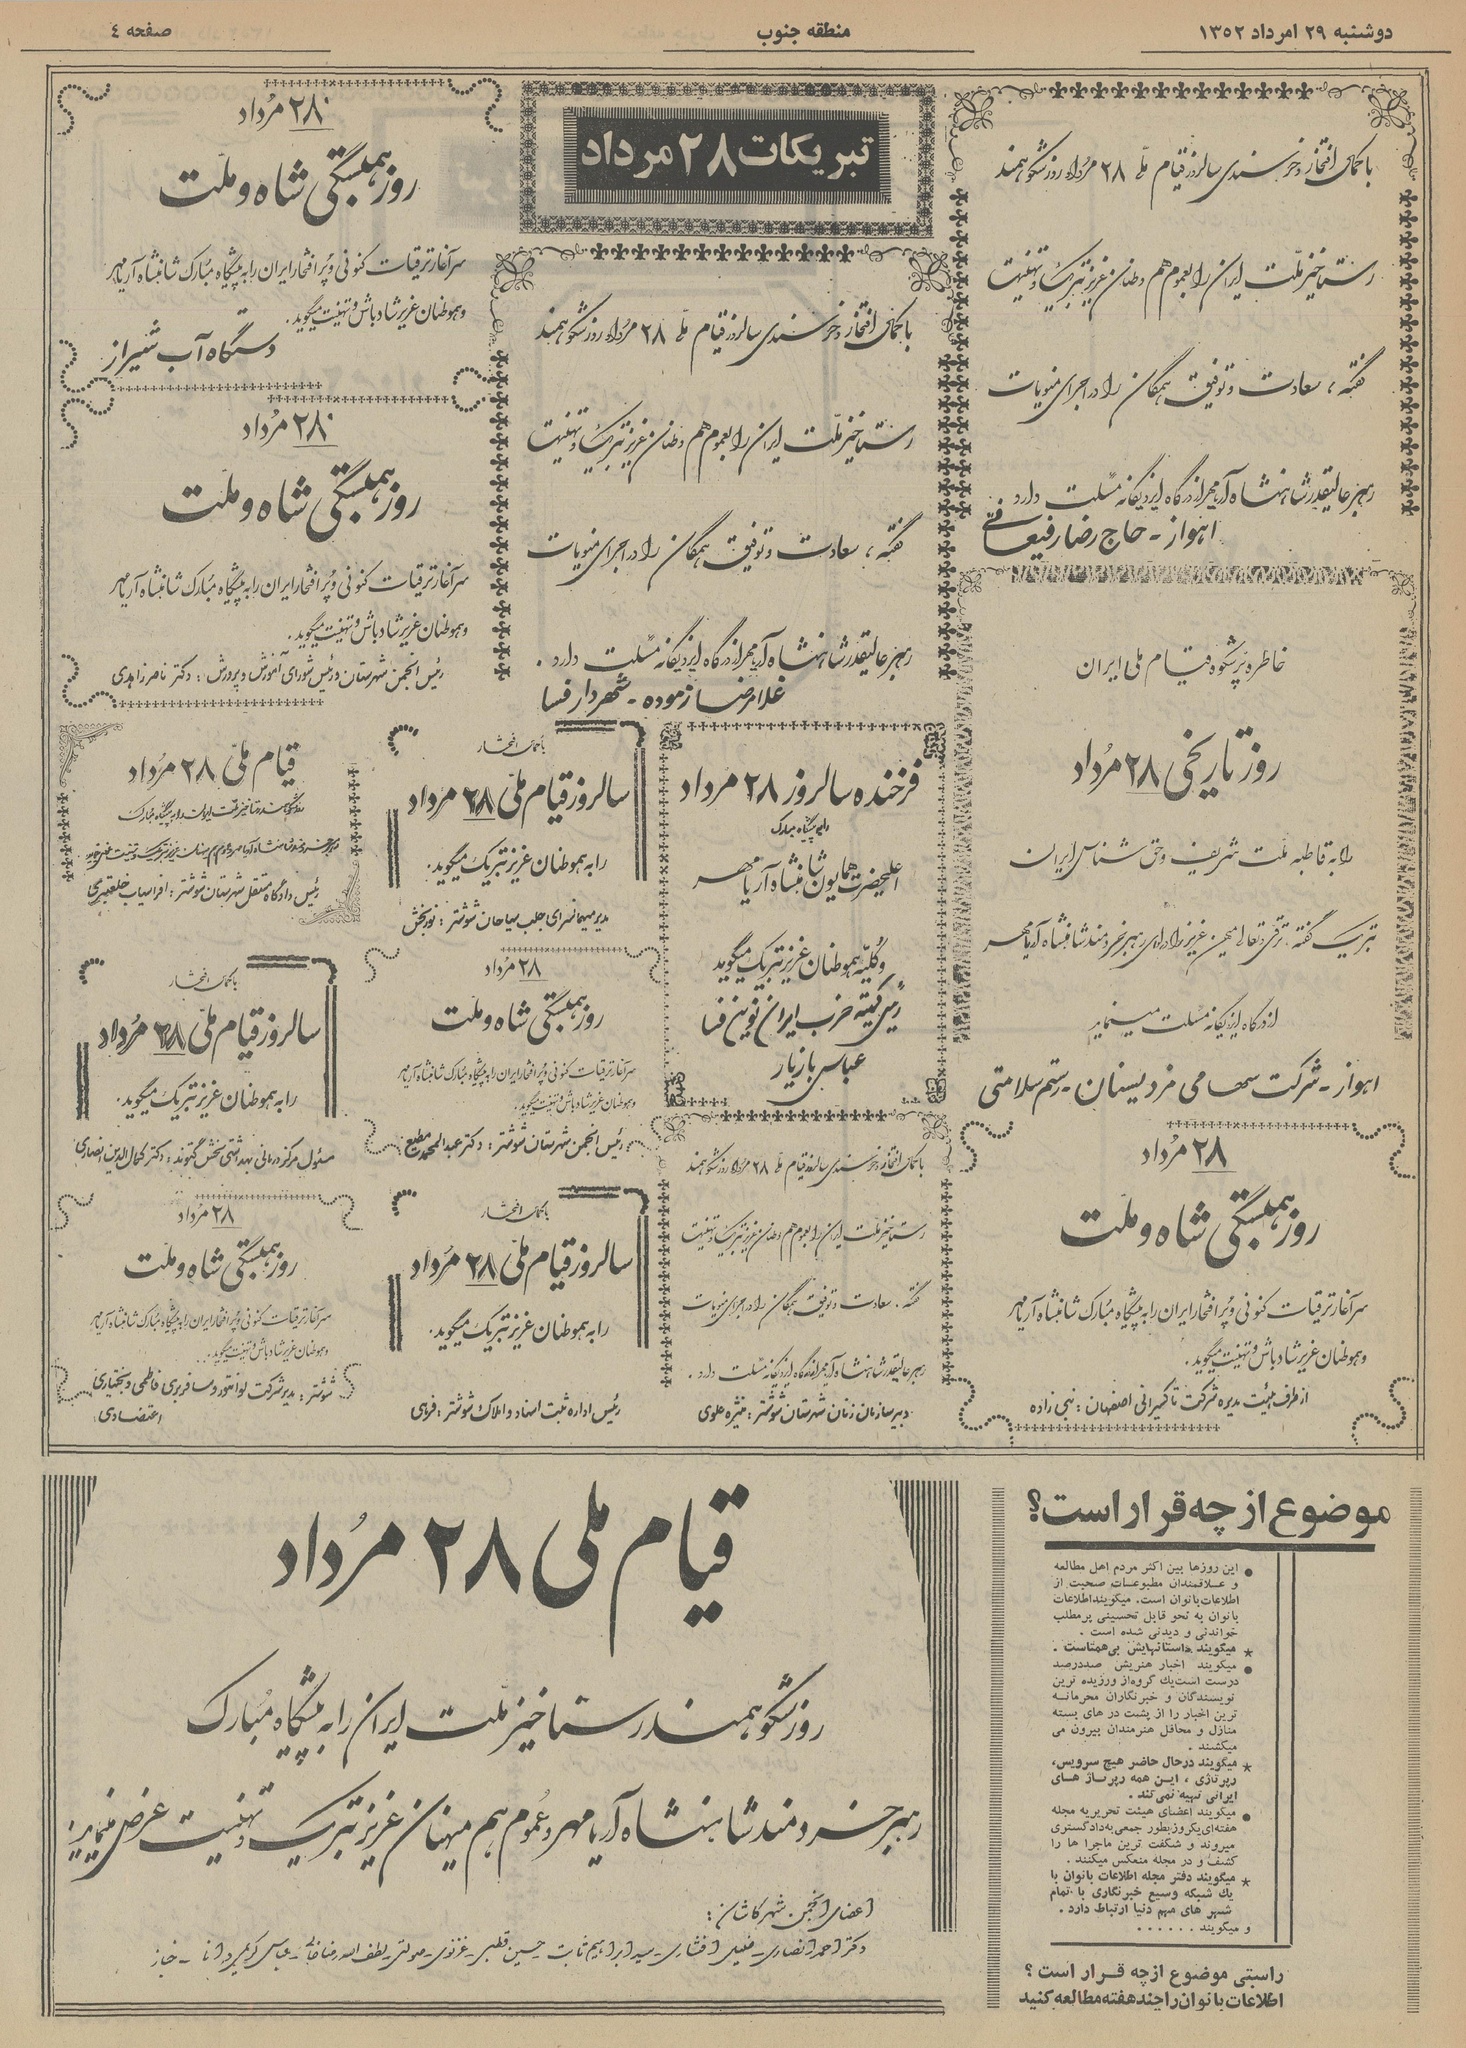 دوشنبه ۲۹ امرداد ۱۳۵۲
منطقه جنوب
صفحه ٤
تبریکات ۲۸ مرداد
با کمال افتخار و خرسندی سالروز قیام ملی ۲۸ مرداد روز شکوهمند
رستاخیز ملت ایران را بعموم هم وطنان عزیز تبریک و تهنیت
گفته ، سعادت و توفیق همگان را در اجرای منویات
رهبر عالیقدر شاهنشاه آریامهر از درگاه ایزد یگانه مسئلت دارد
اهواز - حاج رضا رفیعائی
خاطره پرشکوه قیام ملی ایران
روز تاریخی ۲۸ مرداد
را به قاطبه ملت شریف و حق شناس ایران
تبریک گفته ، ترقی و تعالی میهن عزیز را در لوای رهبر خردمند شاهنشاه آریامهر
از درگاه ایزد یگانه مسئلت مینماید
اهواز - شرکت سهامی مزدیسنان - رستم سلامتی
۲۸ مرداد
روز همبستگی شاه و ملت
سرآغاز ترقیات کنونی و پر افتخار ایران را به پیشگاه مبارک شاهنشاه آریامهر
و هموطنان عزیز شادباش و تهنیت میگوید.
از طرف هیئت مدیره شرکت تاکسیرانی اصفهان : نبی زاده
با کمال افتخار و خرسندی سالروز قیام ملی ۲۸ مرداد روز شکوهمند
رستاخیز ملت ایران را بعموم هم وطنان عزیز تبریک و تهنیت
گفته ، سعادت و توفیق همگان را در اجرای منویات
رهبر عالیقدر شاهنشاه آریامهر از درگاه ایزد یگانه مسئلت دارد .
غلامرضا زموده - شهردار فسا
فرخنده سالروز ۲۸ مرداد
را به پیشگاه مبارک
اعلیحضرت همایون شاهنشاه آریامهر
و کلیه هموطنان عزیز تبریک میگوید
رئیس کمیته حزب ایران نوین فسا
عباس بازیار
با کمال افتخار و خرسندی سالروز قیام ملی ۲۸ مرداد روز شکوهمند
رستاخیز ملت ایران را بعموم هم وطنان عزیز تبریک و تهنیت
گفته ، سعادت و توفیق همگان را در اجرای منویات
رهبر عالیقدر شاهنشاه آریامهر از درگاه ایزد یگانه مسئلت دارد .
دبیر سازمان زنان شهرستان شوشتر : منیژه علوی
۲۸ مرداد
روز همبستگی شاه و ملت
سرآغاز ترقیات کنونی و پر افتخار ایران را به پیشگاه مبارک شاهنشاه آریامهر
و هموطنان عزیز شادباش و تهنیت میگوید.
دستگاه آب شیراز
۲۸ مرداد
روز همبستگی شاه و ملت
سرآغاز ترقیات کنونی و پر افتخار ایران را به پیشگاه مبارک شاهنشاه آریامهر
و هموطنان عزیز شادباش و تهنیت میگوید.
رئیس انجمن شهرستان و رئیس شورای آموزش و پرورش : دکتر ناصر زاهدی
با کمال افتخار
سالروز قیام ملی ۲۸ مرداد
را به هموطنان عزیز تبریک میگوید.
مدیر میهمانسرای جلب سیاحان شوشتر : نوربخش
۲۸ مرداد
روز همبستگی شاه و ملت
سرآغاز ترقیات کنونی و پر افتخار ایران را به پیشگاه مبارک شاهنشاه آریامهر
و هموطنان عزیز شادباش و تهنیت میگوید.
رئیس انجمن شهرستان شوشتر : دکتر عبدالمحمد مطیع
با کمال افتخار
سالروز قیام ملی ۲۸ مرداد
را به هموطنان عزیز تبریک میگوید.
رئیس اداره ثبت اسناد و املاک شوشتر :
قیام ملی ۲۸ مرداد
روز شکوهمند رستاخیز ملت ایران را به پیشگاه مبارک
رهبر خردمند شاهنشاه آریامهر و عموم هم میهنان عزیز تبریک و تهنیت عرض مینماید
رئیس دادگاه مستقل شهرستان شوشتر : افراسیاب خلعتبری
با کمال افتخار
سالروز قیام ملی ۲۸ مرداد
را به هموطنان عزیز تبریک میگوید.
مسئول مرکز درمانی بهداشتی بخش گتوند : دکتر کمال الدین نصاری
۲۸ مرداد
روز همبستگی شاه و ملت
سرآغاز ترقیات کنونی و پر افتخار ایران را به پیشگاه مبارک شاهنشاه آریامهر
و هموطنان عزیز شادباش و تهنیت میگوید.
شوشتر : مدیر شرکت لوانتور و مسافربری فاطمی و بختیاری
اعتضادی
موضوع از چه قرار است؟
● این روزها بین اکثر مردم اهل مطالعه
و علاقمندان مطبوعات صحبت از
اطلاعات بانوان است. میگویند اطلاعات
بانوان به نحو قابل تحسینی پرمطلب
خواندنی و دیدنی شده است .
★ میگویند داستانهایش بی‌همتاست .
● میگویند اخبار هنریش صددرصد
درست است یک گروه از ورزیده ترین
نویسندگان و خبرنگاران محرمانه
ترین اخبار را از پشت در های بسته
منازل و محافل هنرمندان بیرون می
میکشند .
★ میگویند درحال حاضر هیچ سرویس،
رپرتاژی ، این همه رپرتاژ های
ایرانی تهیه نمی‌کند .
● میگویند اعضای هیئت تحریریه مجله
هفته‌ای یکروز بطور جمعی به دادگستری
میروند و شگفت ترین ماجرا ها را
کشف و در مجله منعکس میکنند .
★ میگویند دفتر مجله اطلاعات بانوان با
یک شبکه وسیع خبرنگاری با تمام
شهر های مهم دنیا ارتباط دارد .
و میگویند . . . . . .
راستی موضوع از چه قرار است ؟
اطلاعات بانوان را چند هفته مطالعه کنید
قیام ملی ۲۸ مرداد
روز شکوهمند رستاخیز ملت ایران را به پیشگاه مبارک
رهبر خردمند شاهنشاه آریامهر و عموم هم میهنان عزیز تبریک و تهنیت عرض مینماید
اعضای انجمن شهر کاشان :
دکتر احمد انصاری - خلیل افشاری - سید ابراهیم ثابت - حسین قطبی - غزنوی - صولتی - لطف الله رضاخانی - عباس کریمی دانا - خباز